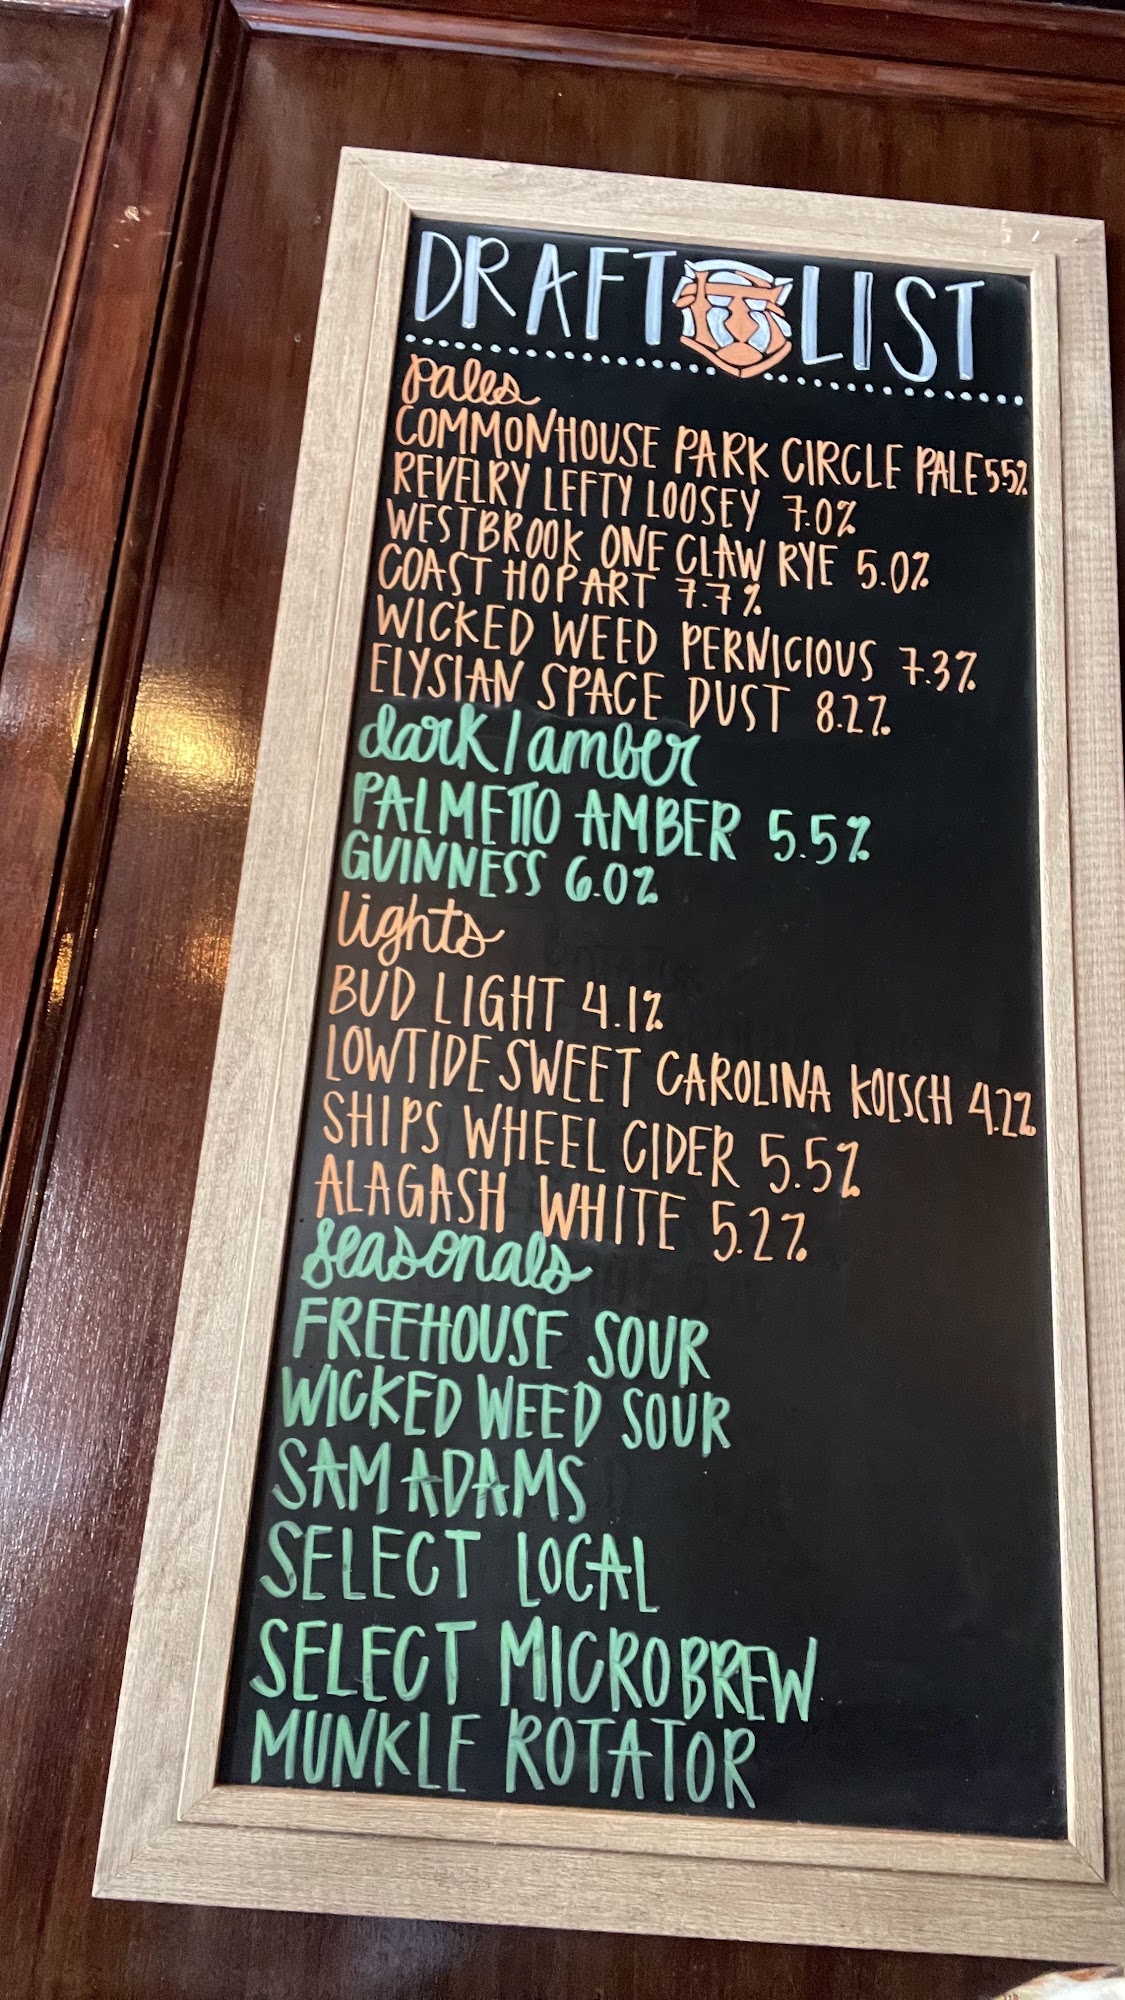 DRAFT LIST
pales
COMMONHOUSE PARK CIRCLE PALE 5.5%
REVELRY LEFTY LOOSEY 7.0%
WESTBROOK ONE CLAW RYE 5.0%
COAST HOP ART 7.7%
WICKED WEED PERNICIOUS 7.3%
ELYSIAN SPACE DUST 8.2%
dark/amber
PALMETTO AMBER 5.5%
GUINNESS 6.0%
lights
BUD LIGHT 4.1%
LOWTIDE SWEET CAROLINA KOLSCH 4.2%
SHIPS WHEEL CIDER 5.5%
ALAGASH WHITE 5.2%
seasonals
FREEHOUSE SOUR
WICKED WEED SOUR
SAM ADAMS
SELECT LOCAL
SELECT MICROBREW
MUNKLE ROTATOR